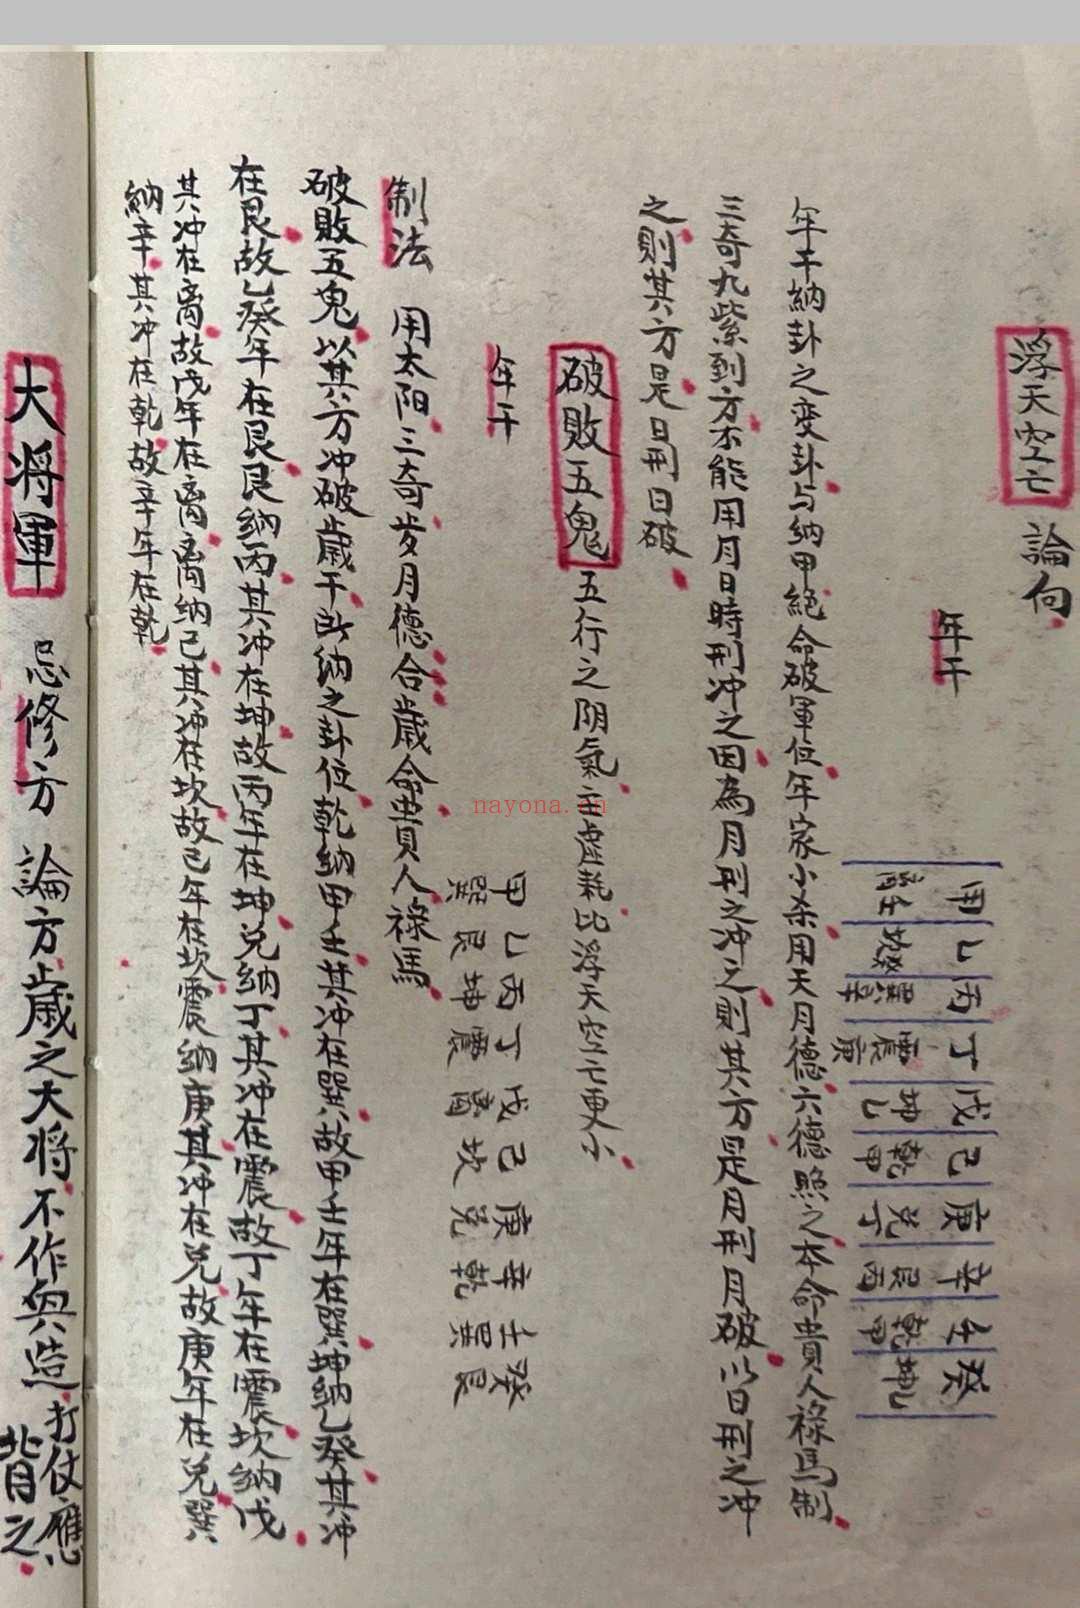 浮天空亡 論向
年干
甲 乙 丙 丁 戊 己 庚 辛 壬 癸
離壬 坎癸 巽辛 震庚 坤乙 乾甲 兌丁 艮丙 乾甲 坤乙
年干納卦之変卦与納甲絕命破軍位年家小杀用天月德六德照之本命貴人祿馬制
三奇九紫到方不能用月日時刑冲之因為月刑之冲之則其方是月刑月破以日刑之冲
之則其方是日刑日破
破敗五鬼 五行之阴氣主虛耗比浮天空亡更小
年干
甲 乙 丙 丁 戊 己 庚 辛 壬 癸
巽 艮 坤 震 離 坎 兌 乾 巽 艮
制法 用太阳三奇岁月德合歲命貴人祿馬
破敗五鬼以其方冲破歲干所納之卦位乾納甲壬其冲在巽故甲壬年在巽坤納乙癸其冲
在艮故乙癸年在艮艮納丙其冲在坤故丙年在坤兌納丁其冲在震故丁年在震坎納戊
其冲在离故戊年在离离納己其冲在坎故己年在坎震納庚其冲在兌故庚年在兌巽
納辛其冲在乾故辛年在乾
大将軍 忌修方 論方歲之大将不作興造 打仗應
背之
nayona.cn